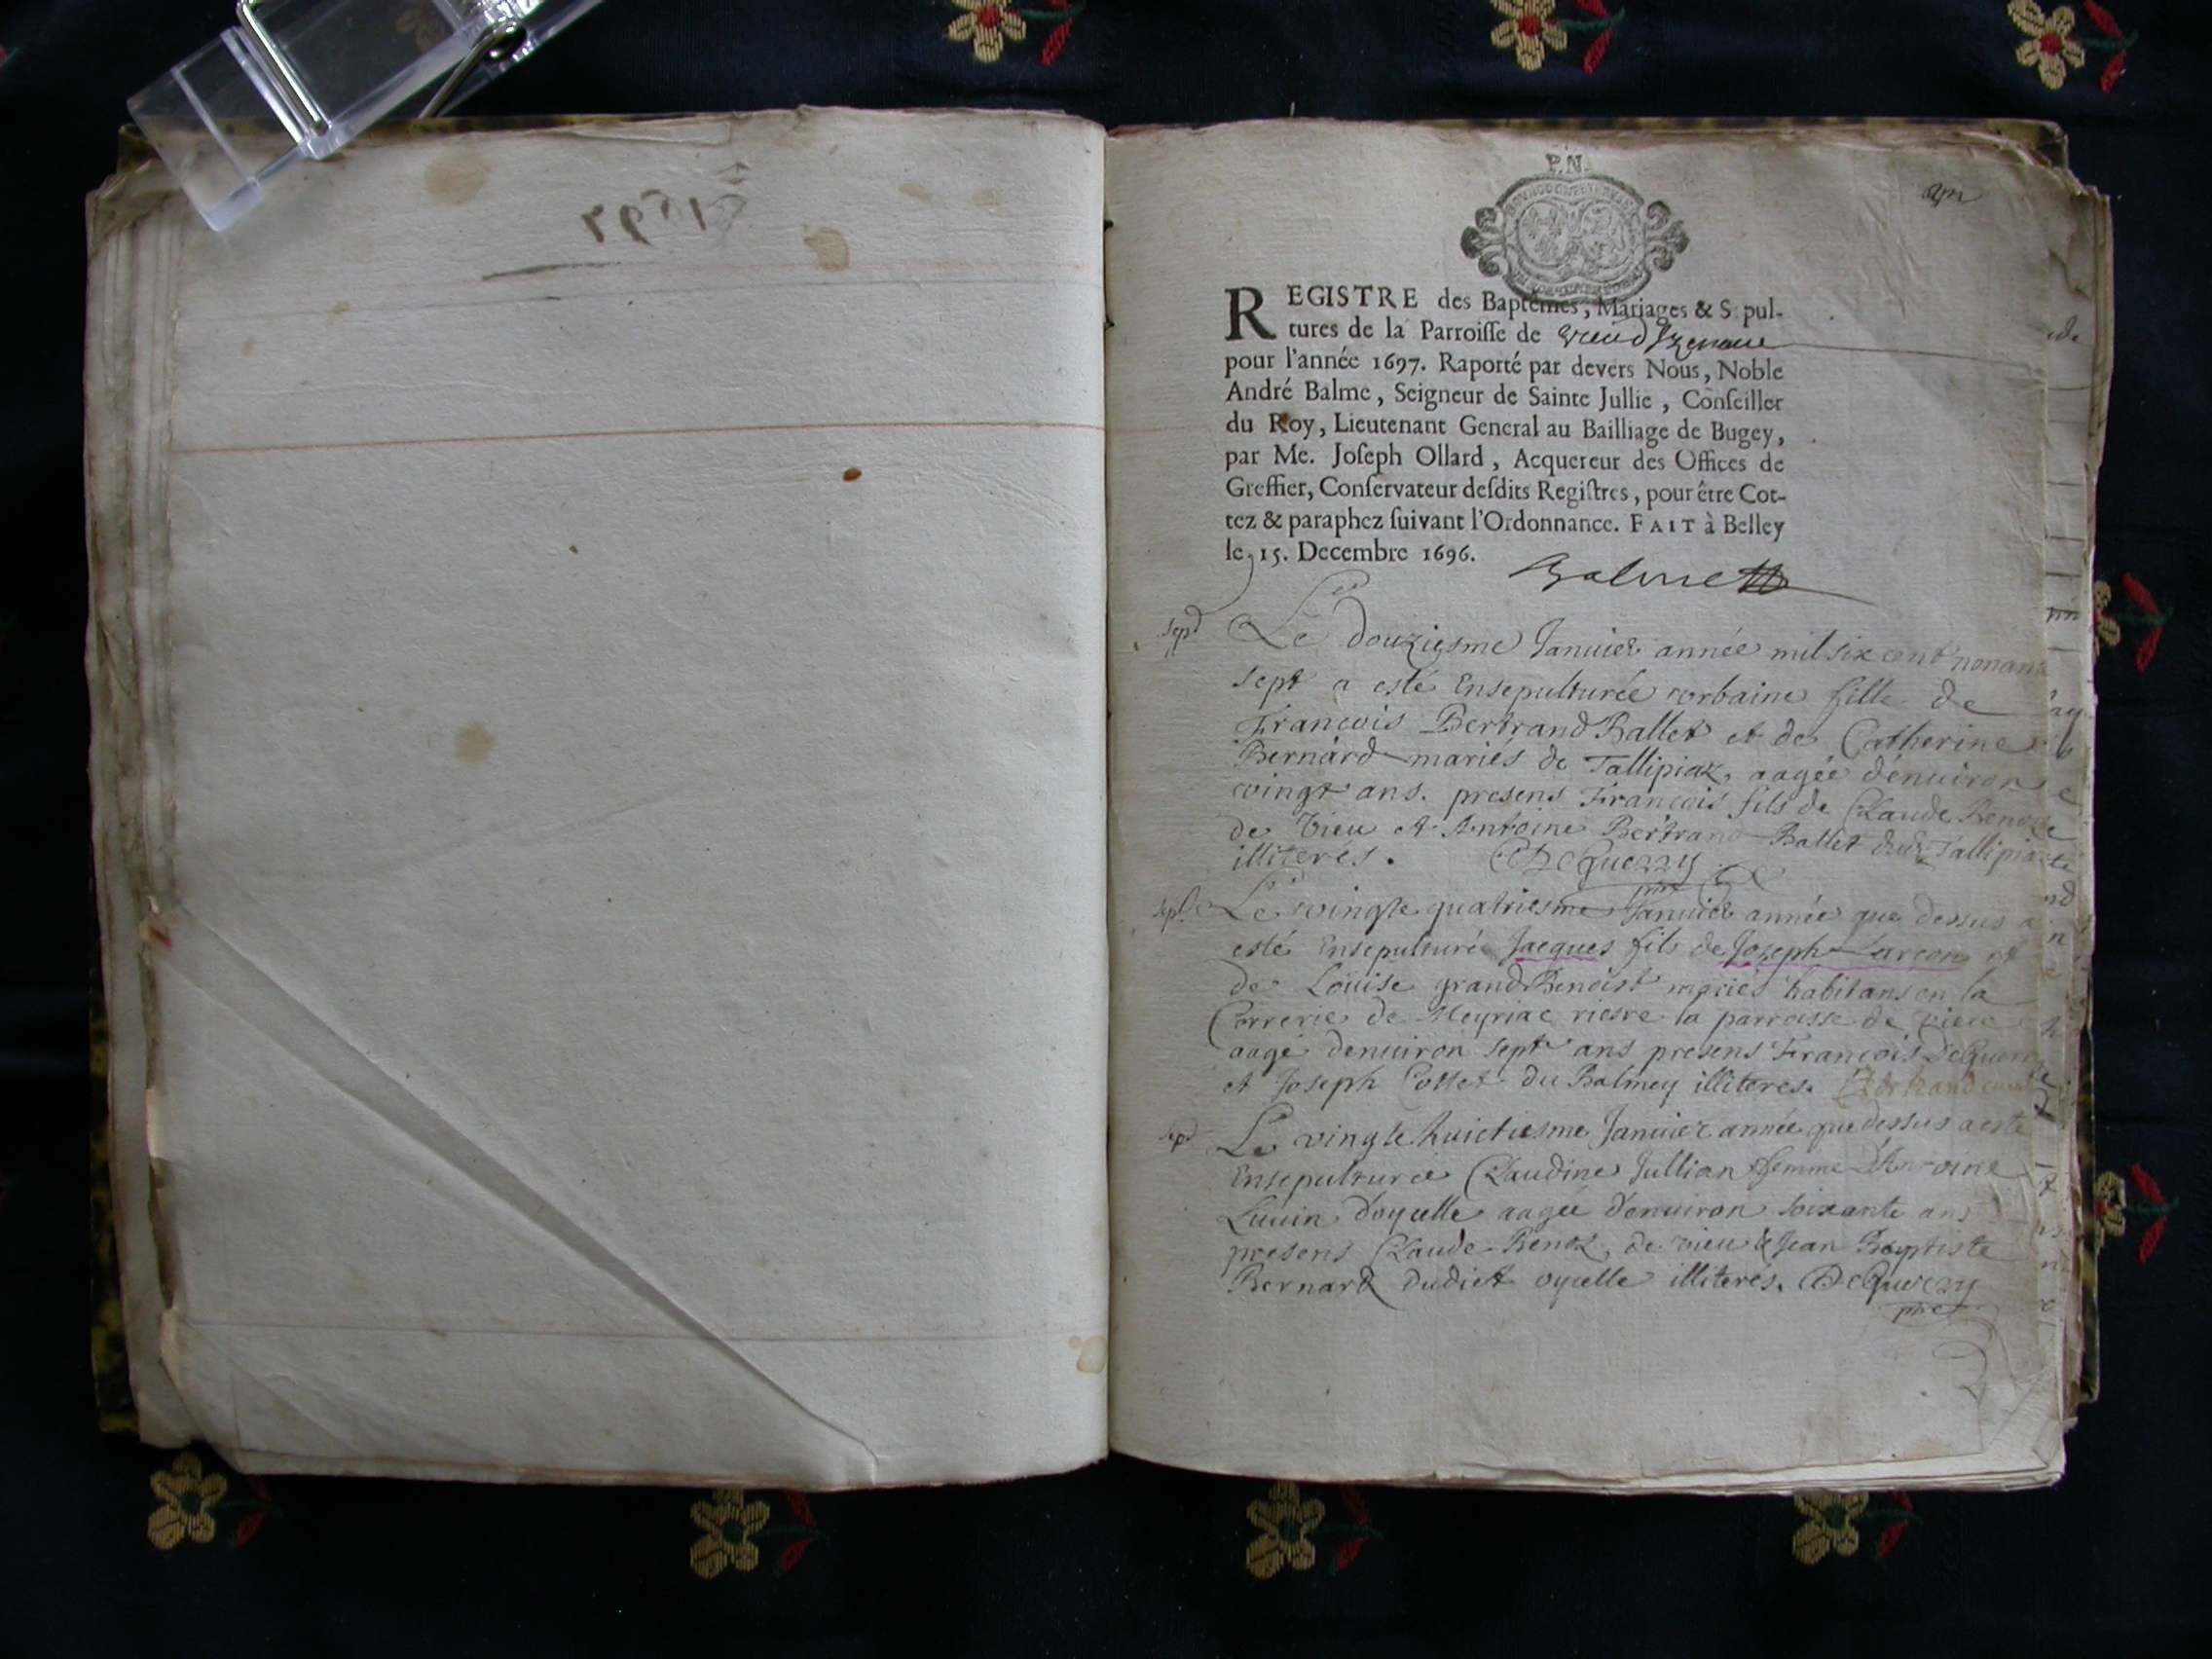 1697
P.N.
REGISTRE des Baptémes, Mariages & Sepul-
tures de la Parroisse de vieu d'Izenave
pour l'année 1697. Raporté par devers Nous, Noble
André Balme, Seigneur de Sainte Jullie, Conseiller
du Roy, Lieutenant General au Bailliage de Bugey,
par Me. Joseph Ollard, Acquereur des Offices de
Greffier, Conservateur desdits Registres, pour être Cot-
tez & paraphez suivant l'Ordonnance. FAIT à Belley
le 15. Decembre 1696.
Balme
sepre
Le douziesme Januier année mil six cent nonante
sept a esté Ensepulturée fille de
François Bertrand Ballet et de Catherine
Bernard mariés de Tallipiaz, aagée d'enuiron
vingt ans. presens François fils de Claude Benoz
de Vieu et Antoine Bertrand Ballet dud Tallipiaz
illiterés. DeQuezzy
sepre
Le vingte quatriesme Januier année que dessus a
esté Ensepulturé Jacques fils de Joseph Larçon et
de Loüise grand Benoist mariés habitans en la
Correrie de Meyriac riesre la parroisse de vieu
aagé denuiron sept ans presens François
et Joseph Collet du Balmey illiteres. Bertrand curé
sepre
Le vingte huictiesme Januier année que dessus a esté
Ensepulturée Claudine Jullian femme d'Antoine
Luuin d'oycelle aagée d'enuiron soixante ans
presens Claude Benoz de vieu & Jean Baptiste
Bernard dudict oycelle illiterés. DeQuezzy
pbre